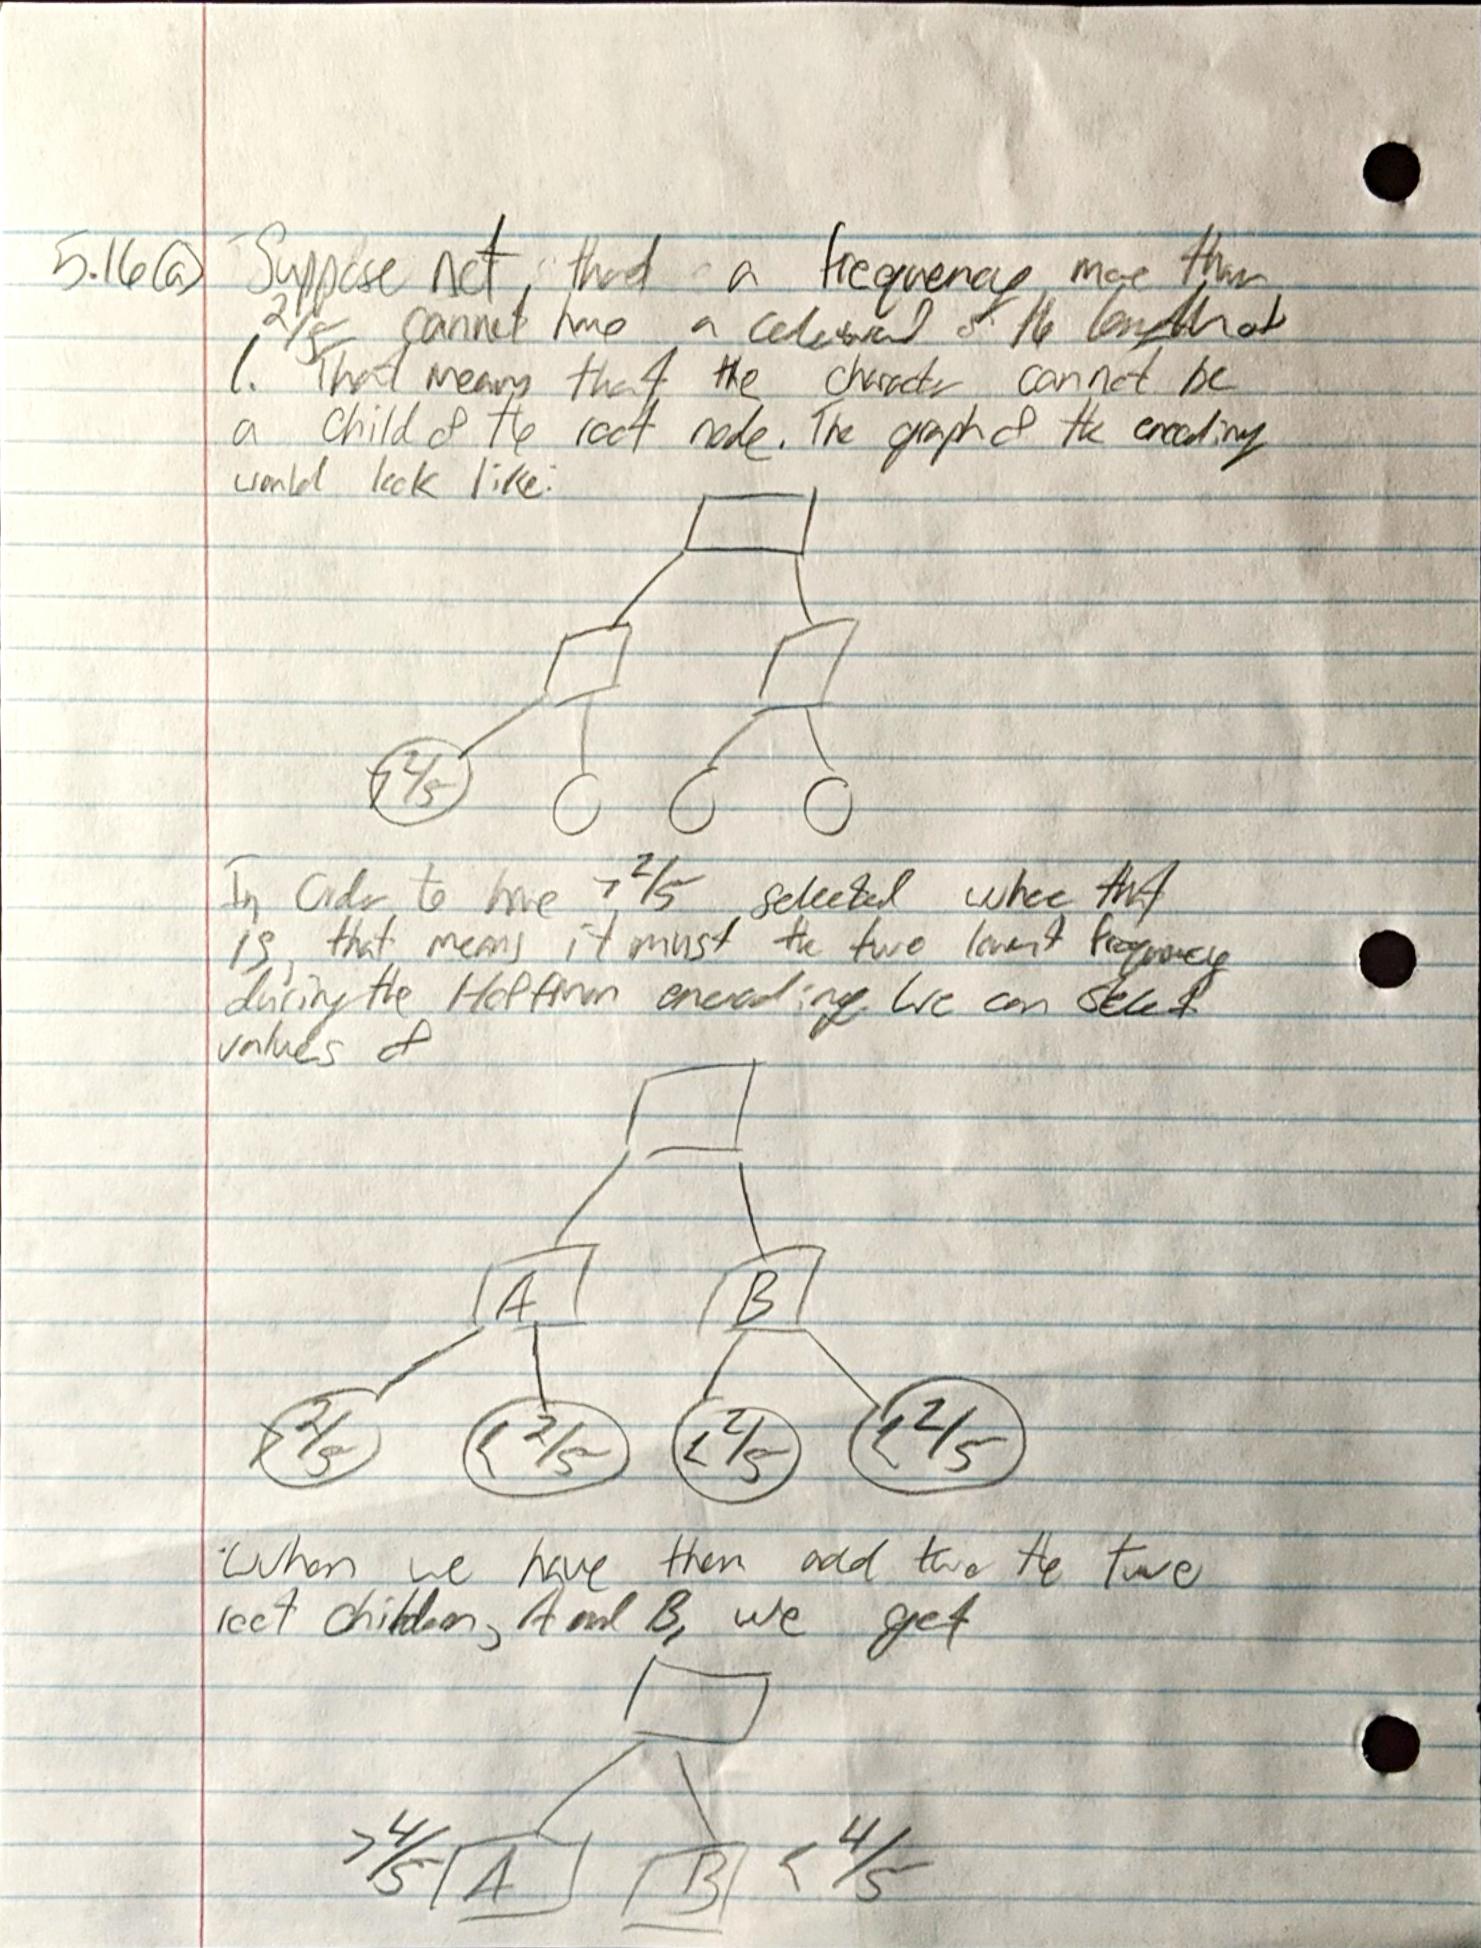 5.16(a) Suppose not, that a frequency more than
2/5 cannot have a codeword of the length of
1. That means that the character cannot be
a child of the root node. The graph of the encoding
would look like:
>2/5
In order to have >2/5 selected where that
is, that means it must the two lowest frequency
during the Hoffman encoding. We can select
values of
A B
>2/5 <2/5 <2/5 <2/5
When we have then add two the two
root children, A and B, we get
>4/5 A B <4/5